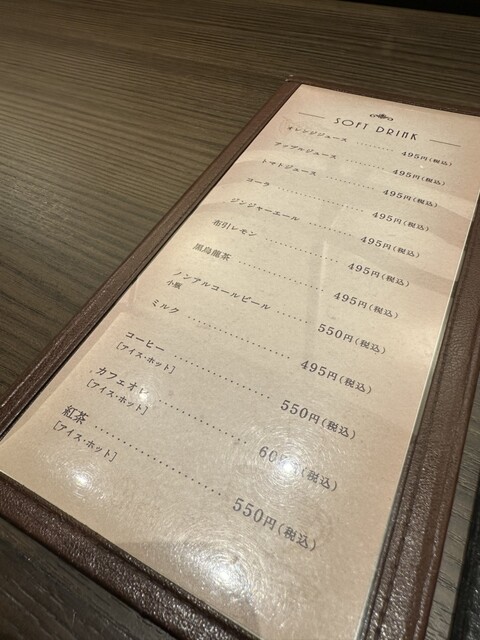 SOFT DRINK
オレンジジュース ········· 495円(税込)
アップルジュース ········· 495円(税込)
トマトジュース ·········· 495円(税込)
コーラ ················ 495円(税込)
ジンジャーエール ········· 495円(税込)
布引レモン ············· 495円(税込)
黒烏龍茶 ·············· 495円(税込)
ノンアルコールビール ······ 550円(税込)
小瓶
ミルク ················ 495円(税込)
コーヒー ··············· 550円(税込)
[アイス・ホット]
カフェオレ ············· 円(税込)
[アイス・ホット]
紅茶 ·················· 550円(税込)
[アイス・ホット]